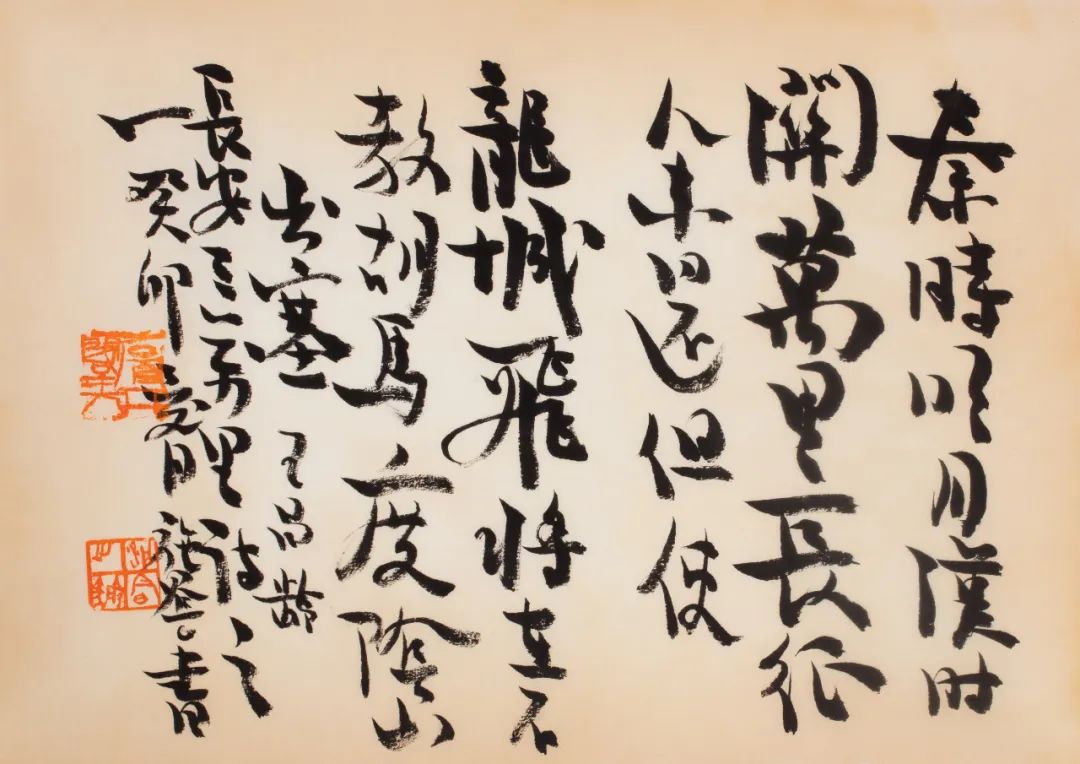 秦時明月漢时
關萬里長征
人未回还但使
龍城飛將在不
教胡馬度陰山
出塞 王昌齡
長安三万里诗之
一 癸卯 書